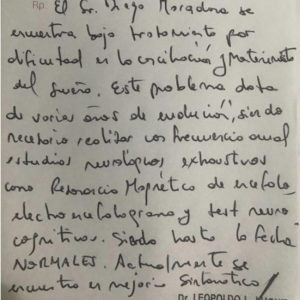 Rp. El Sr. Diego Maradona se
encuentra bajo tratamiento por
dificultad en la conciliación y Mantenimiento
del Sueño. Este problema data
de varios años de evolución, siendo
necesario realizar con frecuencia anual
estudios neurológicos exhaustivos
como Resonancia Magnética de encéfalo,
electroencefalograma y test neuro
cognitivos. Siendo hasta la fecha
NORMALES. Actualmente se
encuentra en mejoría Sintomática
Dr. LEOPOLDO L.